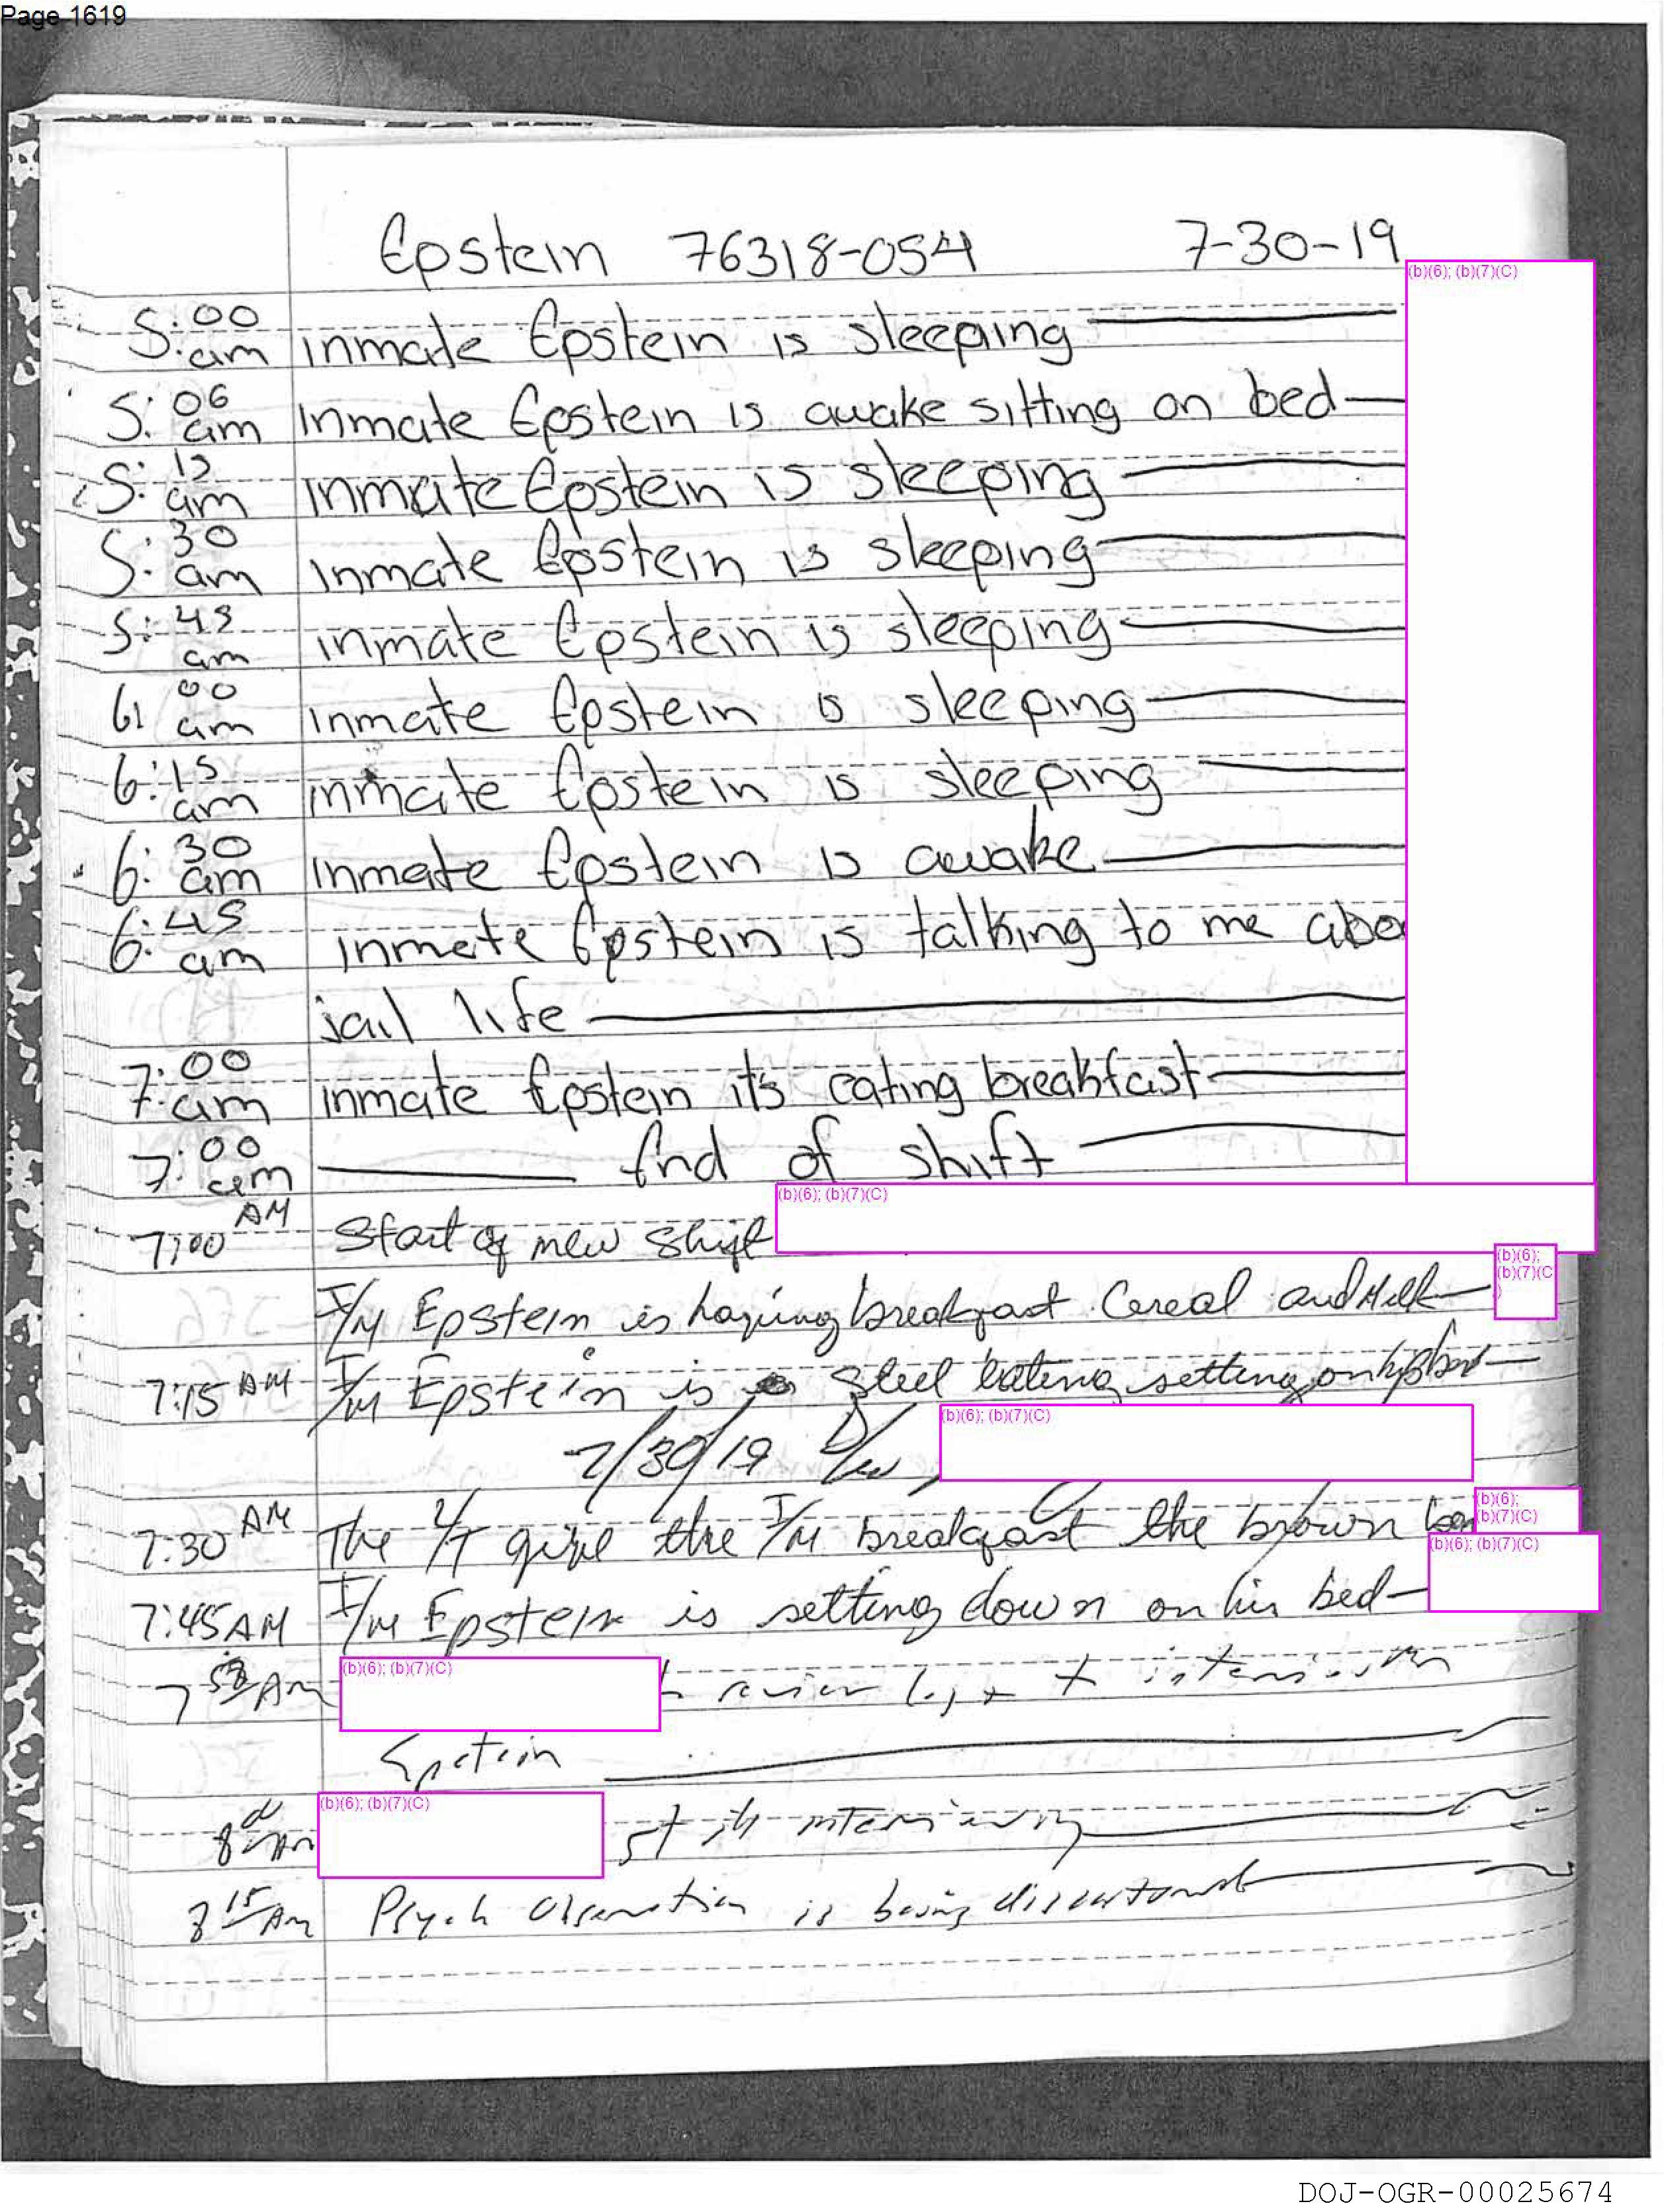 Page 1619
Epstein 76318-054 7-30-19
(b)(6); (b)(7)(C)
5:00 am inmate Epstein is sleeping
5:06 am inmate Epstein is awake sitting on bed
5:15 am inmate Epstein is sleeping
5:30 am inmate Epstein is sleeping
5:45 am inmate Epstein is sleeping
6:00 am inmate Epstein is sleeping
6:15 am inmate Epstein is sleeping
6:30 am inmate Epstein is awake
6:45 am inmate Epstein is talking to me abo
jail life
7:00 am inmate Epstein it's eating breakfast
7:00 am End of shift
7:00 AM Start of new shift (b)(6); (b)(7)(C)
I/M Epstein is having breakfast Cereal and Milk (b)(6); (b)(7)(C
7:15 AM I/M Epstein is setting on
7/30/19 D/W, (b)(6); (b)(7)(C)
7:30 AM The give the I/M breakfast the brown (b)(6); (b)(7)(C)
7:45 AM I/M Epstein is setting down on his bed (b)(6); (b)(7)(C)
7 AM (b)(6); (b)(7)(C) review
Epstein
8 AM (b)(6); (b)(7)(C) still interviewing
8 15 AM Psych Observation is being
DOJ-OGR-00025674